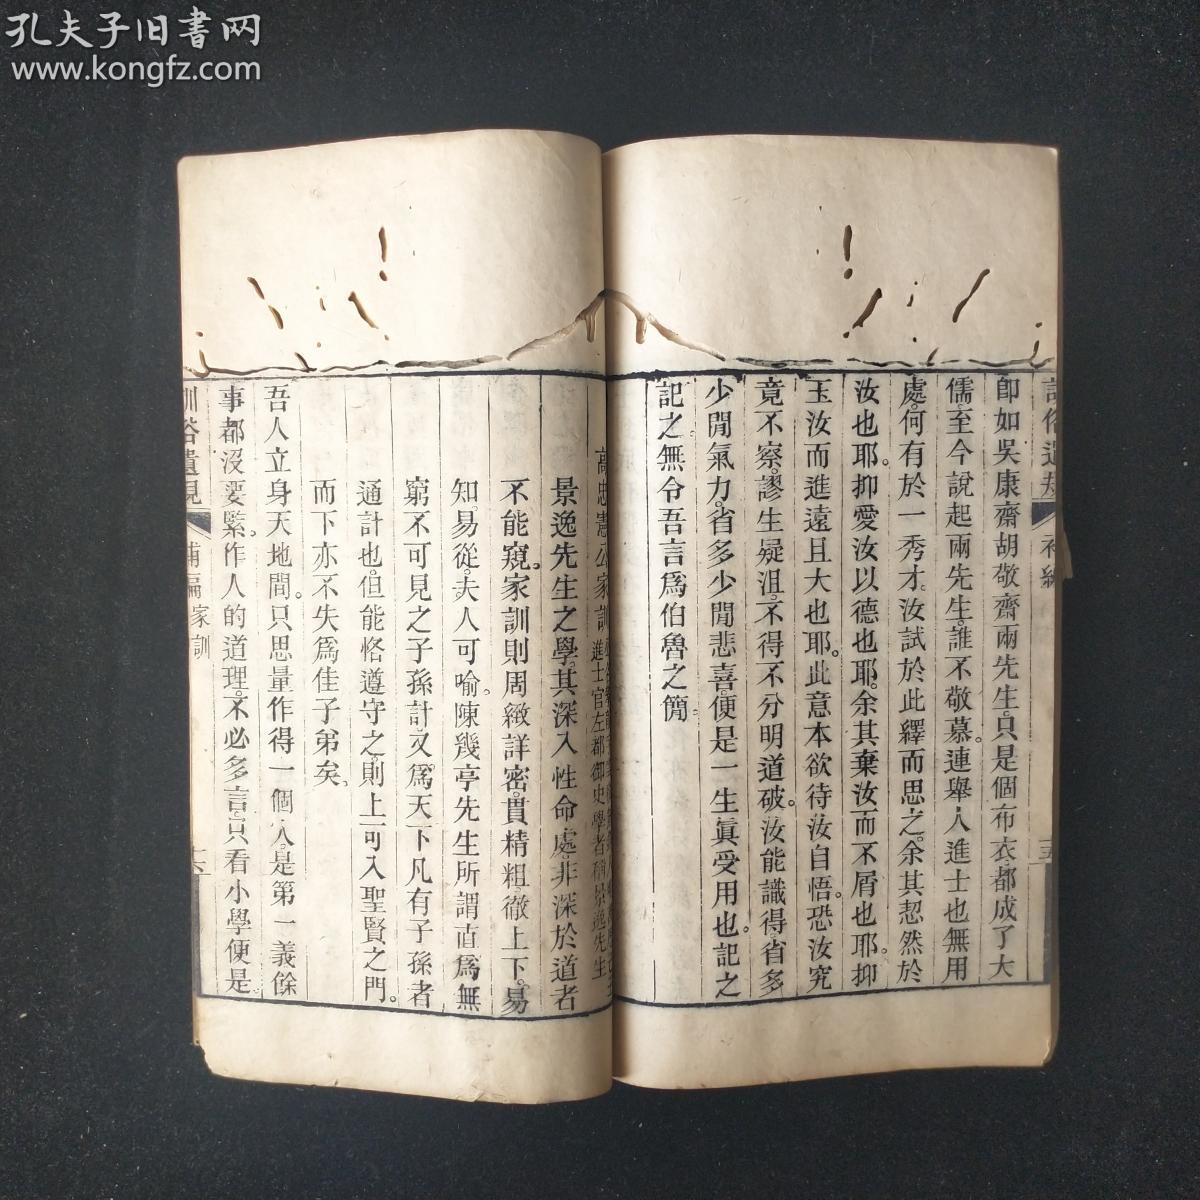 孔夫子旧书网
www.kongfz.com
訓俗遺規
補編
十五
卽如吳康齋胡敬齋兩先生只是個布衣都成了大
儒至今說起兩先生誰不敬慕連舉人進士也無用
處何有於一秀才汝試於此繹而思之余其恝然於
汝也耶抑愛汝以德也耶余其棄汝而不屑也耶抑
玉汝而進遠且大也耶此意本欲待汝自悟恐汝究
竟不察謬生疑沮不得不分明道破汝能識得省多
少閒氣力省多少閒悲喜便是一生眞受用也記之
記之無令吾言爲伯魯之簡
高忠憲公家訓
進士官左都御史學者稱景逸先生
景逸先生之學其深入性命處非深於道者
不能窺家訓則周緻詳密貫精粗徹上下易
知易從夫人可喻陳幾亭先生所謂直爲無
窮不可見之子孫計又爲天下凡有子孫者
通計也但能恪遵守之則上可入聖賢之門
而下亦不失爲佳子弟矣
吾人立身天地間只思量作得一個人是第一義餘
事都沒要緊作人的道理不必多言只看小學便是
訓俗遺規
補編家訓
十六